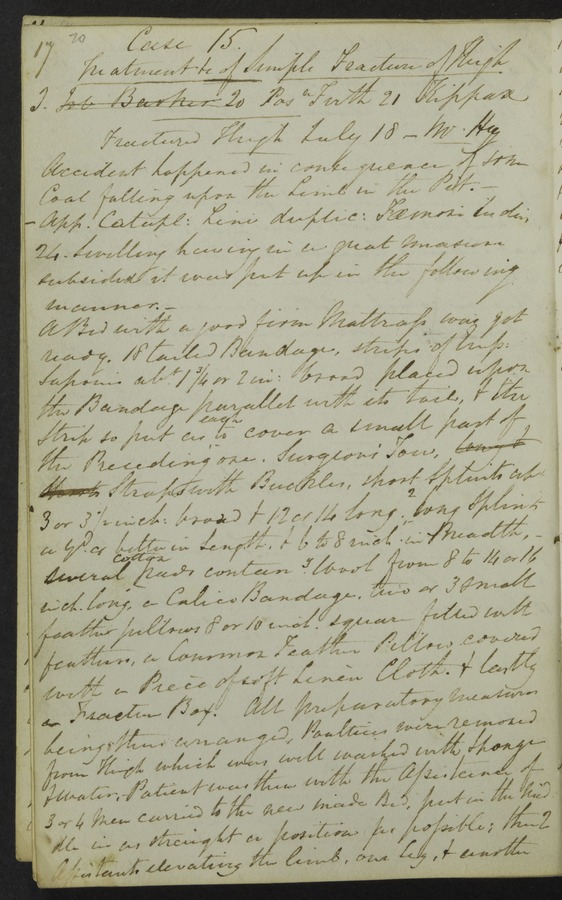 17 20 Case 15.
Treatment &c of Simple Fracture of Thigh
J. Job Barker 20 Pos Firth 21 Kippax
Fractured Thigh July 18 - Mr. Hey
Accident happened in consequence of some
Coal falling upon the Limb in the Pit. -
- App. Catapl: Lini duplic: Femori
24. Swelling having in a great measure
subsided it was put up in the following
manner. -
A Bed with a good firm Mattrass was got
ready. 18 tailed Bandage, strips of Emp:
Saponis abt. 1 3/4 or 2 in: broad placed upon
the Bandage parallel with its tails, & the
Strip so put as each to cover a small part of
the Preceding one. Surgeons Tow,
Straps with Buckles, short Splints abt
3 or 3 1/2 inch: broad & 12 or 14 long. 2 long Splints
a yd. or better in Length, & 6 to 8 inch: in Breadth, -
several cotton pads containg wool from 8 to 14 or 16
inch. long, a Calico Bandage, two or 3 small
feather pillows 8 or 10 inch. square filled with
feathers, a Common Feather Pillow covered
with a Piece of soft Linen Cloth. & lastly
a Fracture Box. All preparatory measures
being thus arranged, Poultices were removed
from Thigh which was well washed with Sponge
& water; Patient was then with the Assistance of
3 or 4 Men carried to the new made Bed, put in the Mid
dle in as straight a position as possible; then 2
Assistants elevating the limb, one leg, & another